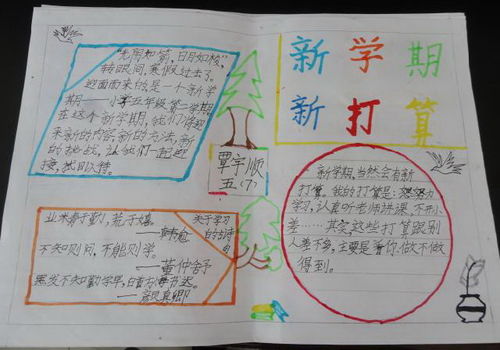 新学期
新打算
"光阴如箭,日月如梭"
转眼间,寒假过去了。
迎面而来的是一个新学
期——小学五年级第二学期
在这个新学期,我们将迎
来新的内容新的方法,新
的挑战,让我们一起迎
接,拭目以待。
覃宇顺
五(7)
关于学习
的古诗
业木奏于勤,荒于嬉,
——韩愈
不知则问,不能则学。
——董仲舒
黑发不知勤学早,白首方悔书迟。
——颜真卿
新学期,当然会有新
打算,我的打算是:努力
学习,认真听老师讲课,不开小
差……其实这些打算跟别
人差不多,主要是看你做不做
得到。